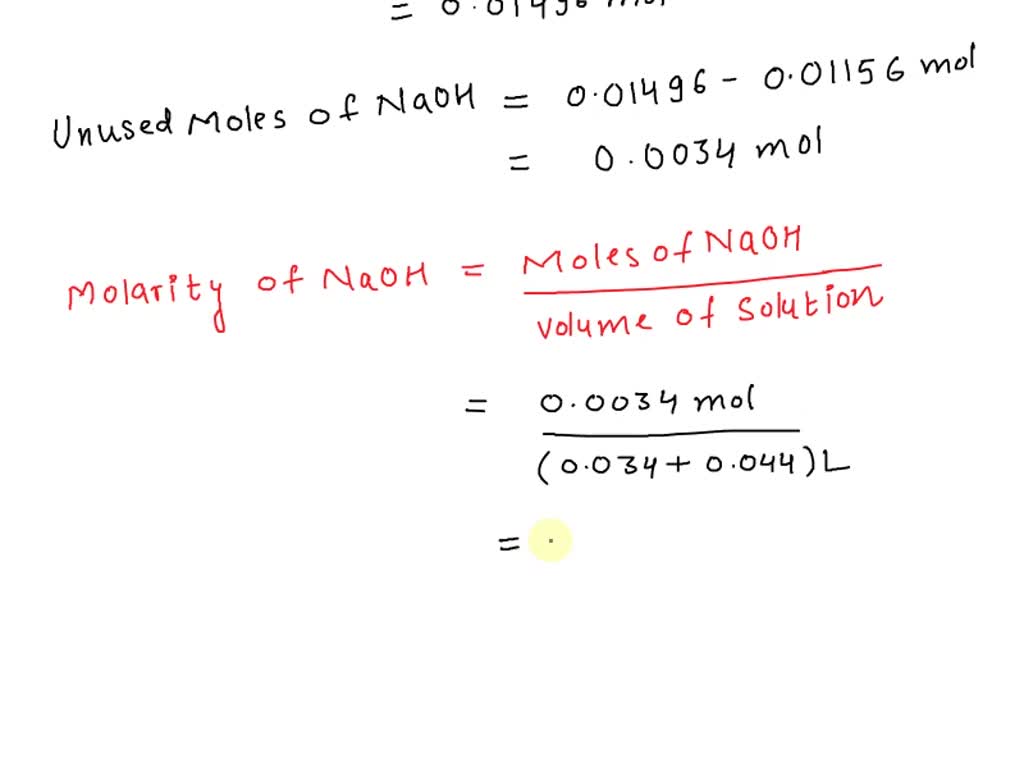 = 0.01496 mol
Unused Moles of NaOH = 0.01496 - 0.01156 mol
= 0.0034 mol
Molarity of NaOH = Moles of NaOH
volume of solution
= 0.0034 mol
(0.034 + 0.044) L
= .